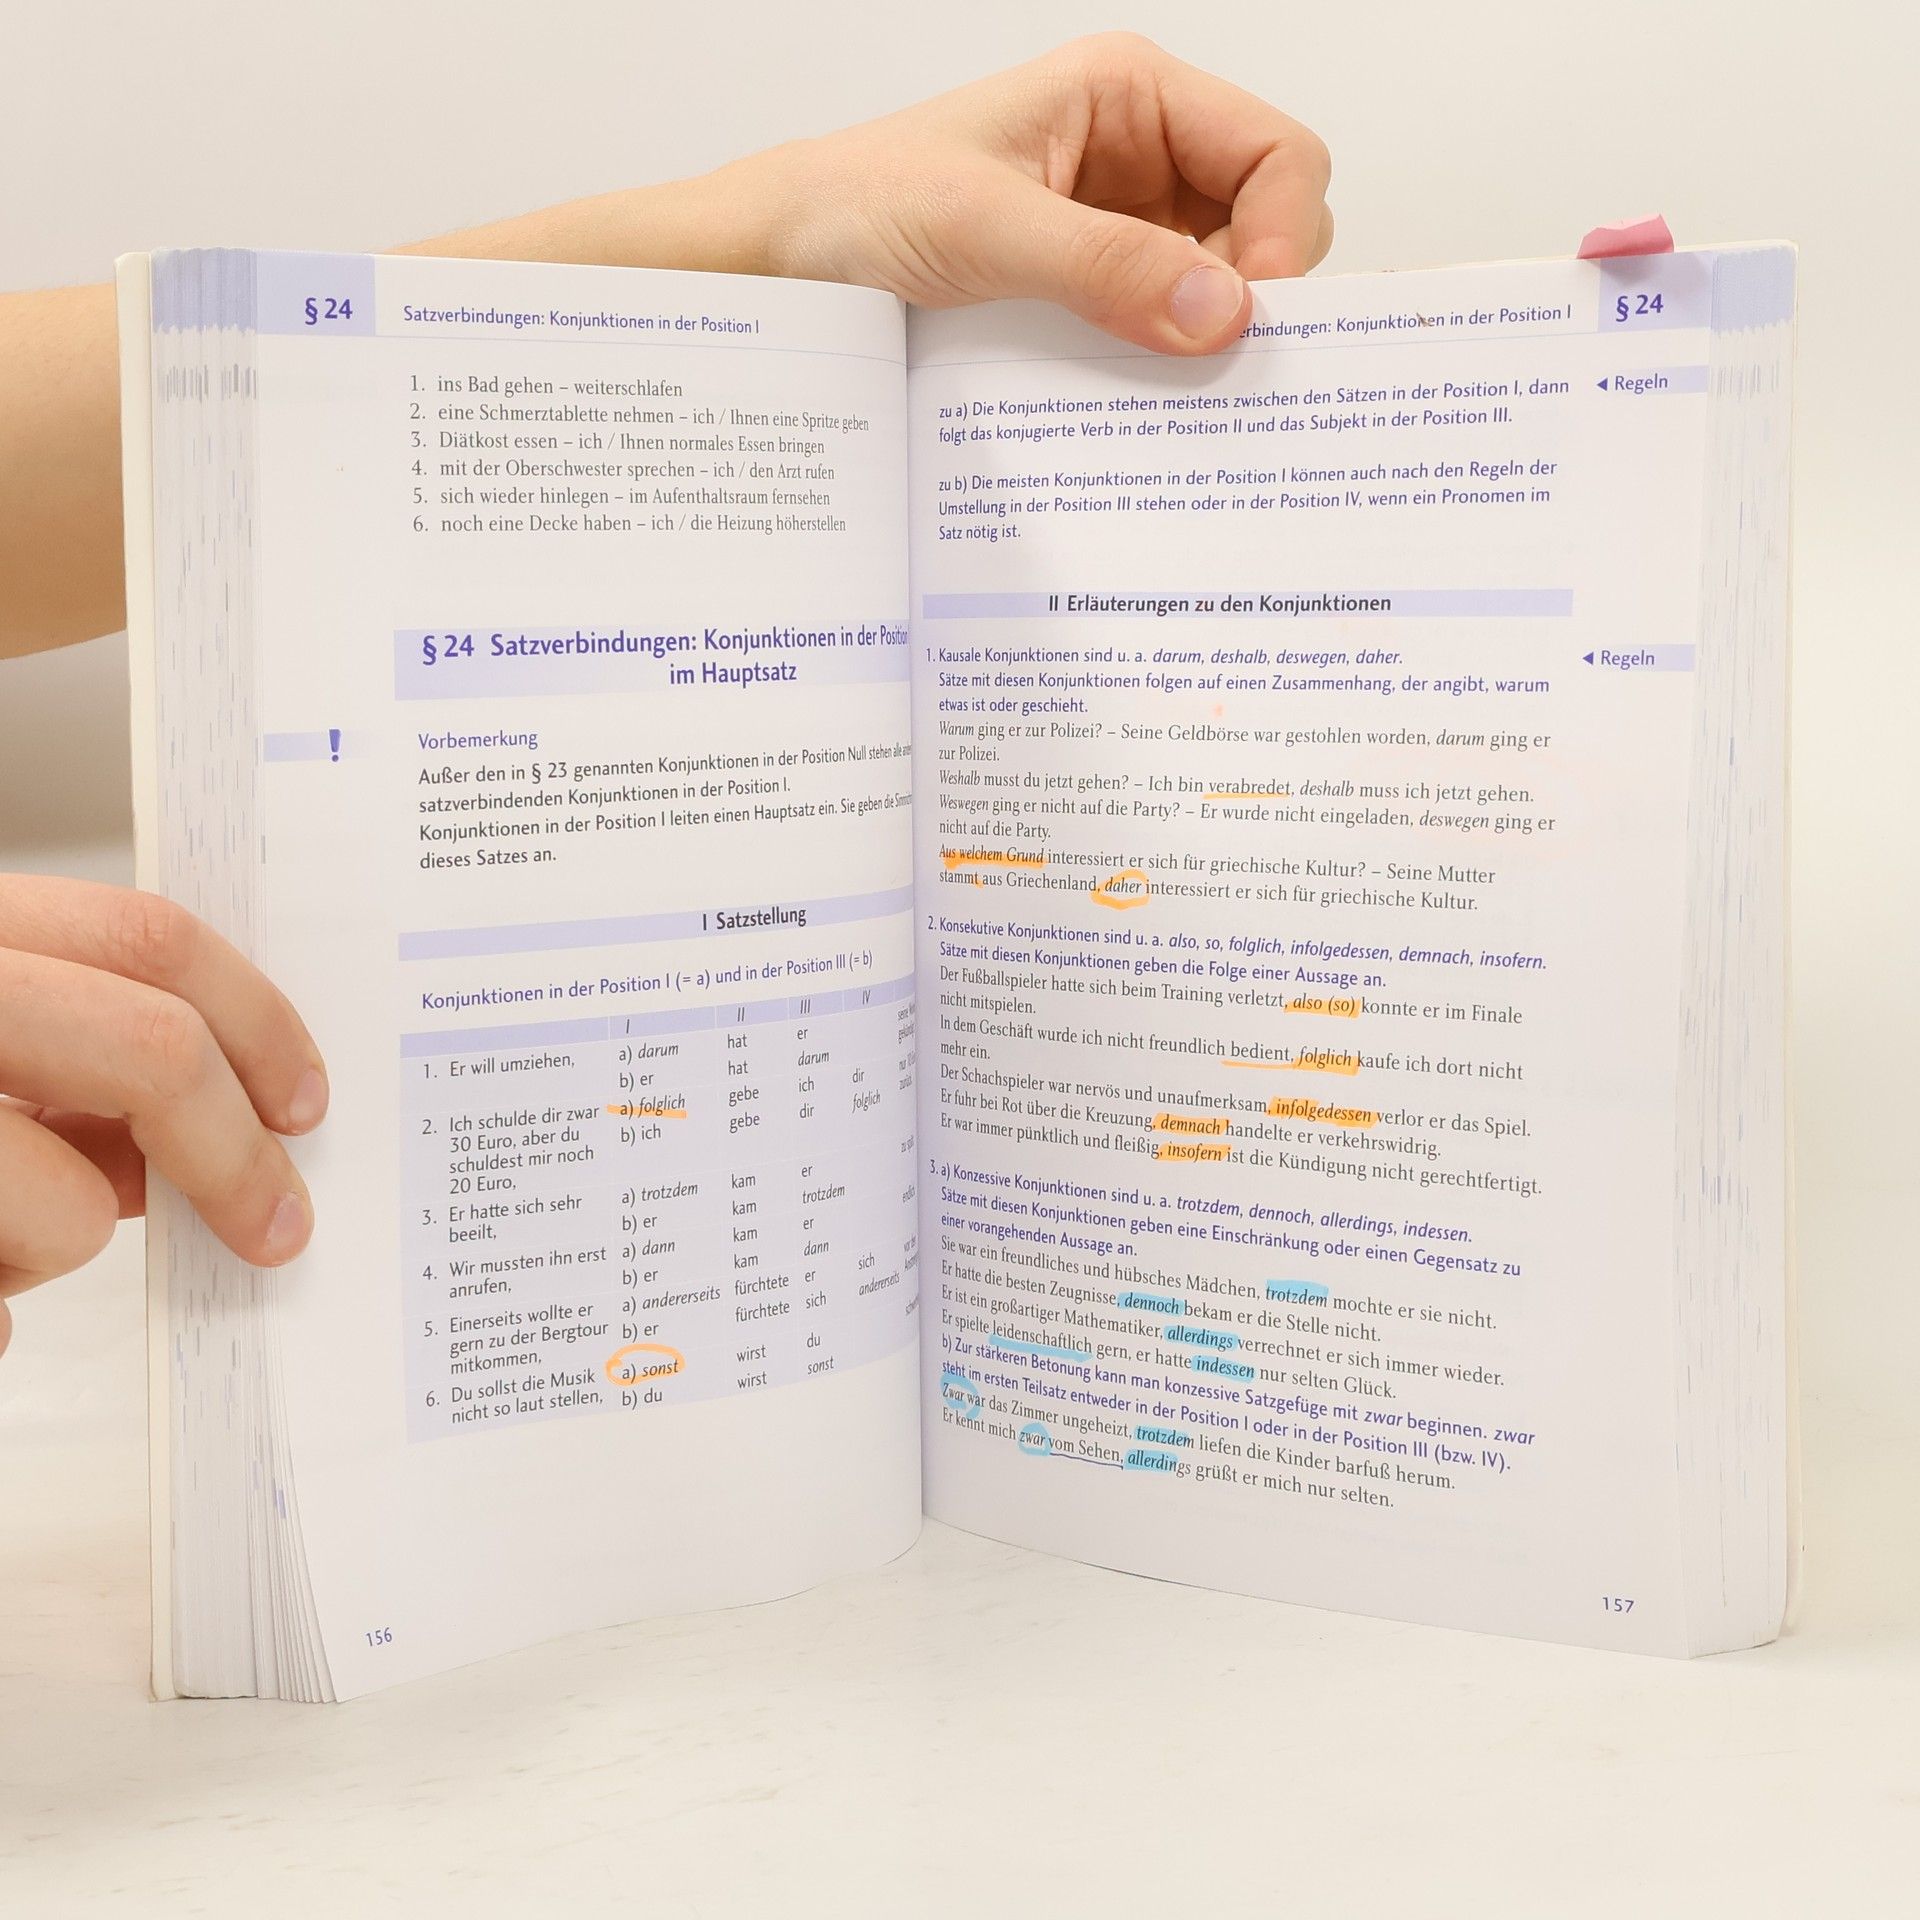 § 24 Satzverbindungen: Konjunktionen in der Position I
1. ins Bad gehen – weiterschlafen
2. eine Schmerztablette nehmen – ich / Ihnen eine Spritze geben
3. Diätkost essen – ich / Ihnen normales Essen bringen
4. mit der Oberschwester sprechen – ich / den Arzt rufen
5. sich wieder hinlegen – im Aufenthaltsraum fernsehen
6. noch eine Decke haben – ich / die Heizung höherstellen
§ 24 Satzverbindungen: Konjunktionen in der Position
im Hauptsatz
!
Vorbemerkung
Außer den in § 23 genannten Konjunktionen in der Position Null stehen alle
satzverbindenden Konjunktionen in der Position I.
Konjunktionen in der Position I leiten einen Hauptsatz ein. Sie geben die
dieses Satzes an.
I Satzstellung
Konjunktionen in der Position I (= a) und in der Position III (= b)
I II III IV
1. Er will umziehen, a) darum hat er
b) er hat darum
2. Ich schulde dir zwar a) folglich gebe ich dir
30 Euro, aber du b) ich gebe dir folglich
schuldest mir noch
20 Euro,
3. Er hatte sich sehr a) trotzdem kam er
beeilt, b) er kam trotzdem
4. Wir mussten ihn erst a) dann kam er
anrufen, b) er kam dann
5. Einerseits wollte er a) andererseits fürchtete er sich
gern zu der Bergtour b) er fürchtete sich andererseits
mitkommen,
6. Du sollst die Musik a) sonst wirst du
nicht so laut stellen, b) du wirst sonst
156
rbindungen: Konjunktionen in der Position I § 24
zu a) Die Konjunktionen stehen meistens zwischen den Sätzen in der Position I, dann ◄ Regeln
folgt das konjugierte Verb in der Position II und das Subjekt in der Position III.
zu b) Die meisten Konjunktionen in der Position I können auch nach den Regeln der
Umstellung in der Position III stehen oder in der Position IV, wenn ein Pronomen im
Satz nötig ist.
II Erläuterungen zu den Konjunktionen
1. Kausale Konjunktionen sind u. a. darum, deshalb, deswegen, daher. ◄ Regeln
Sätze mit diesen Konjunktionen folgen auf einen Zusammenhang, der angibt, warum
etwas ist oder geschieht.
Warum ging er zur Polizei? – Seine Geldbörse war gestohlen worden, darum ging er
zur Polizei.
Weshalb musst du jetzt gehen? – Ich bin verabredet, deshalb muss ich jetzt gehen.
Weswegen ging er nicht auf die Party? – Er wurde nicht eingeladen, deswegen ging er
nicht auf die Party.
Aus welchem Grund interessiert er sich für griechische Kultur? – Seine Mutter
stammt aus Griechenland, daher interessiert er sich für griechische Kultur.
2. Konsekutive Konjunktionen sind u. a. also, so, folglich, infolgedessen, demnach, insofern.
Sätze mit diesen Konjunktionen geben die Folge einer Aussage an.
Der Fußballspieler hatte sich beim Training verletzt, also (so) konnte er im Finale
nicht mitspielen.
In dem Geschäft wurde ich nicht freundlich bedient, folglich kaufe ich dort nicht
mehr ein.
Der Schachspieler war nervös und unaufmerksam, infolgedessen verlor er das Spiel.
Er fuhr bei Rot über die Kreuzung, demnach handelte er verkehrswidrig.
Er war immer pünktlich und fleißig, insofern ist die Kündigung nicht gerechtfertigt.
3. a) Konzessive Konjunktionen sind u. a. trotzdem, dennoch, allerdings, indessen.
Sätze mit diesen Konjunktionen geben eine Einschränkung oder einen Gegensatz zu
einer vorangehenden Aussage an.
Sie war ein freundliches und hübsches Mädchen, trotzdem mochte er sie nicht.
Er hatte die besten Zeugnisse, dennoch bekam er die Stelle nicht.
Er ist ein großartiger Mathematiker, allerdings verrechnet er sich immer wieder.
Er spielte leidenschaftlich gern, er hatte indessen nur selten Glück.
b) Zur stärkeren Betonung kann man konzessive Satzgefüge mit zwar beginnen. zwar
steht im ersten Teilsatz entweder in der Position I oder in der Position III (bzw. IV).
Zwar war das Zimmer ungeheizt, trotzdem liefen die Kinder barfuß herum.
Er kennt mich zwar vom Sehen, allerdings grüßt er mich nur selten.
157